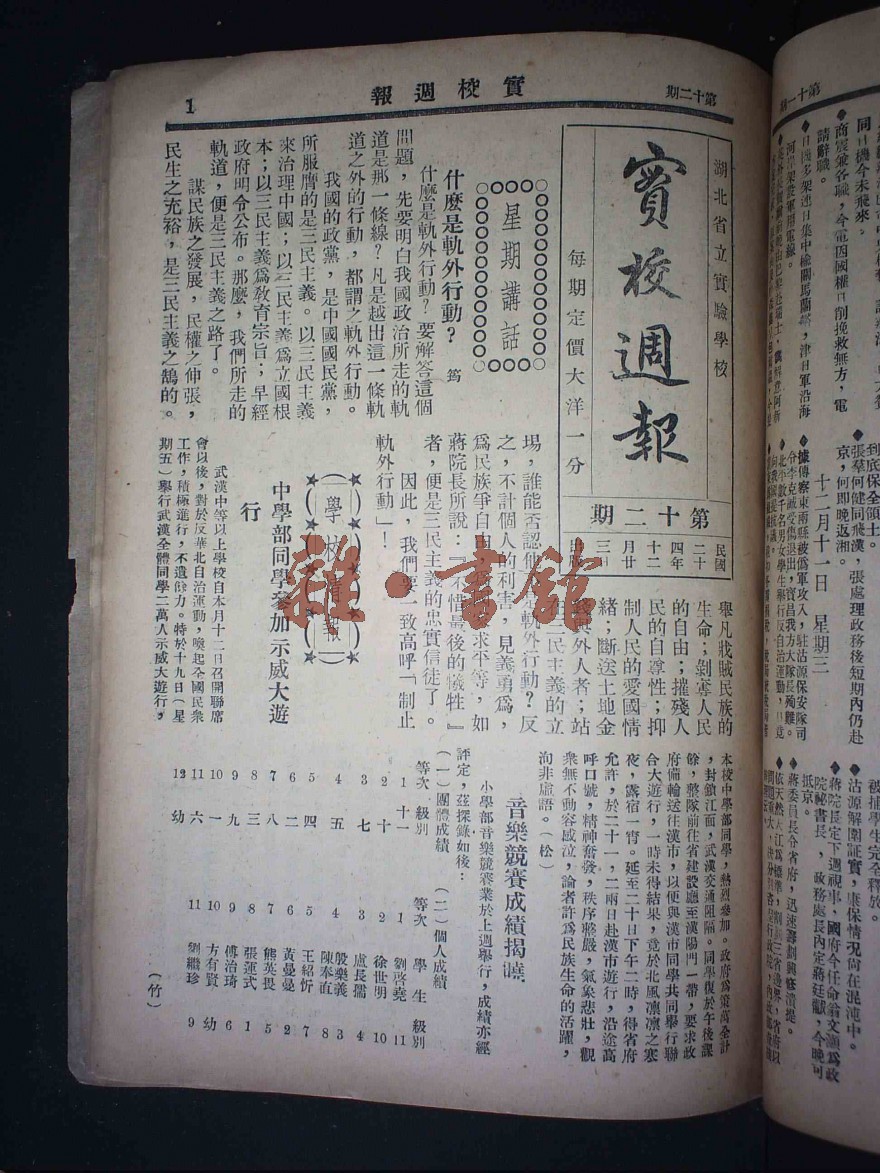 第十二期
實校週報
1
湖北省立實驗學校
實校週報
每期定價大洋一分
第十二期
民國
二十
四年
十二
月廿
三日
星期講話
什麼是軌外行動?
筠
什麼是軌外行動?要解答這個
問題,先要明白我國政治所走的軌
道是那一條線?凡是越出這一條軌
道之外的行動,都謂之軌外行動。
我國的政黨,是中國國民黨,
所服膺的是三民主義。以三民主義
來治理中國;以三民主義為立國根
本;以三民主義爲敎育宗旨;早經
政府明令公布。那麼,我們所走的
軌道,便是三民主義之路了。
謀民族之發展,民權之伸張,
民生之充裕,是三民主義之鵠的。
舉凡戕賊民族的
生命;剝奪人民
的自由;摧殘人
民的自尊性;抑
制人民的愛國情
緒;斷送土地金
與外人者;站
在三民主義的立
場,誰能否認他是軌外行動?反
之,不計個人的利害,見義勇爲,
爲民族爭自由,求平等,如
蔣院長所說:『不惜最後的犧牲』
者,便是三民主義的忠實信徒了。
因此,我們要一致高呼「制止
軌外行動」!
(學校情報)
中學部同學參加示威大遊
行
武漢中等以上學校自本月十二日召開聯席
會以後,對於反華北自治運動,喚起全國民衆
工作,積極進行,不遺餘力。特於十九日(星
期五)舉行武漢全體同學二萬人示威大遊行,
本校中學部同學,熱烈參加。政府爲策萬全計
,封鎖江面,武漢交通阻隔。同學復於午後課
餘,整隊前往省建設廳至漢陽門一帶,要求政
府備輪送往漢市,以便與漢市同學共同舉行聯
合大遊行,一時未得結果,竟於北風凛凛之寒
夜,露宿一宵。延至二十日下午二時,得省府
允許,於二十一,二兩日赴漢市遊行,沿途高
呼口號,精神奮發,秩序整嚴,氣象悲壯,觀
衆無不動容感泣,論者許爲民族生命的活躍,
洵非虛語。(松)
音樂競賽成績揭曉
小學部音樂競賽業於上週舉行,成績亦經
評定,茲探錄如後:
(一)團體成績
等次 級別
1 十一
2 十
3 七
4 五
5 四
6 二
7 八
8 三
9 九
10 一
11 六
12 幼
(二)個人成績
等次 學生 級別
1 劉啓堯 11
2 徐世明 10
3 盧長儒 4
4 殷樂義 3
陳奉直 8
5 王紹忻 7
6 黃曼曼 2
7 熊英畏 5
8 張運式 1
9 傅治琦 6
10 方有賢 幼
11 劉繼珍 9
(竹)
第十一期
同日機今未飛來。
商震兼各職,今電因國權日削挽救無方,電
請辭職。
到底保全領土。
張羣何健同飛漢,張處理政務後短期內仍赴
京,何即晚返湘。
十二月十一日 星期三
據傳察東兩縣被僞軍攻入,駐沽源保安隊司
令李克敵受傷退出,寶昌我方大隊長殉難。
被捕學生完全釋放。
沽源解圍証實,康保情況尚在混沌中。
蔣院長定下週視事,國府今任命翁文灝爲政
院祕書長,政務處長內定蔣廷黻,今晚可
抵京。
蔣委員長令省府,迅速籌劃興修清堤。
雜·書館